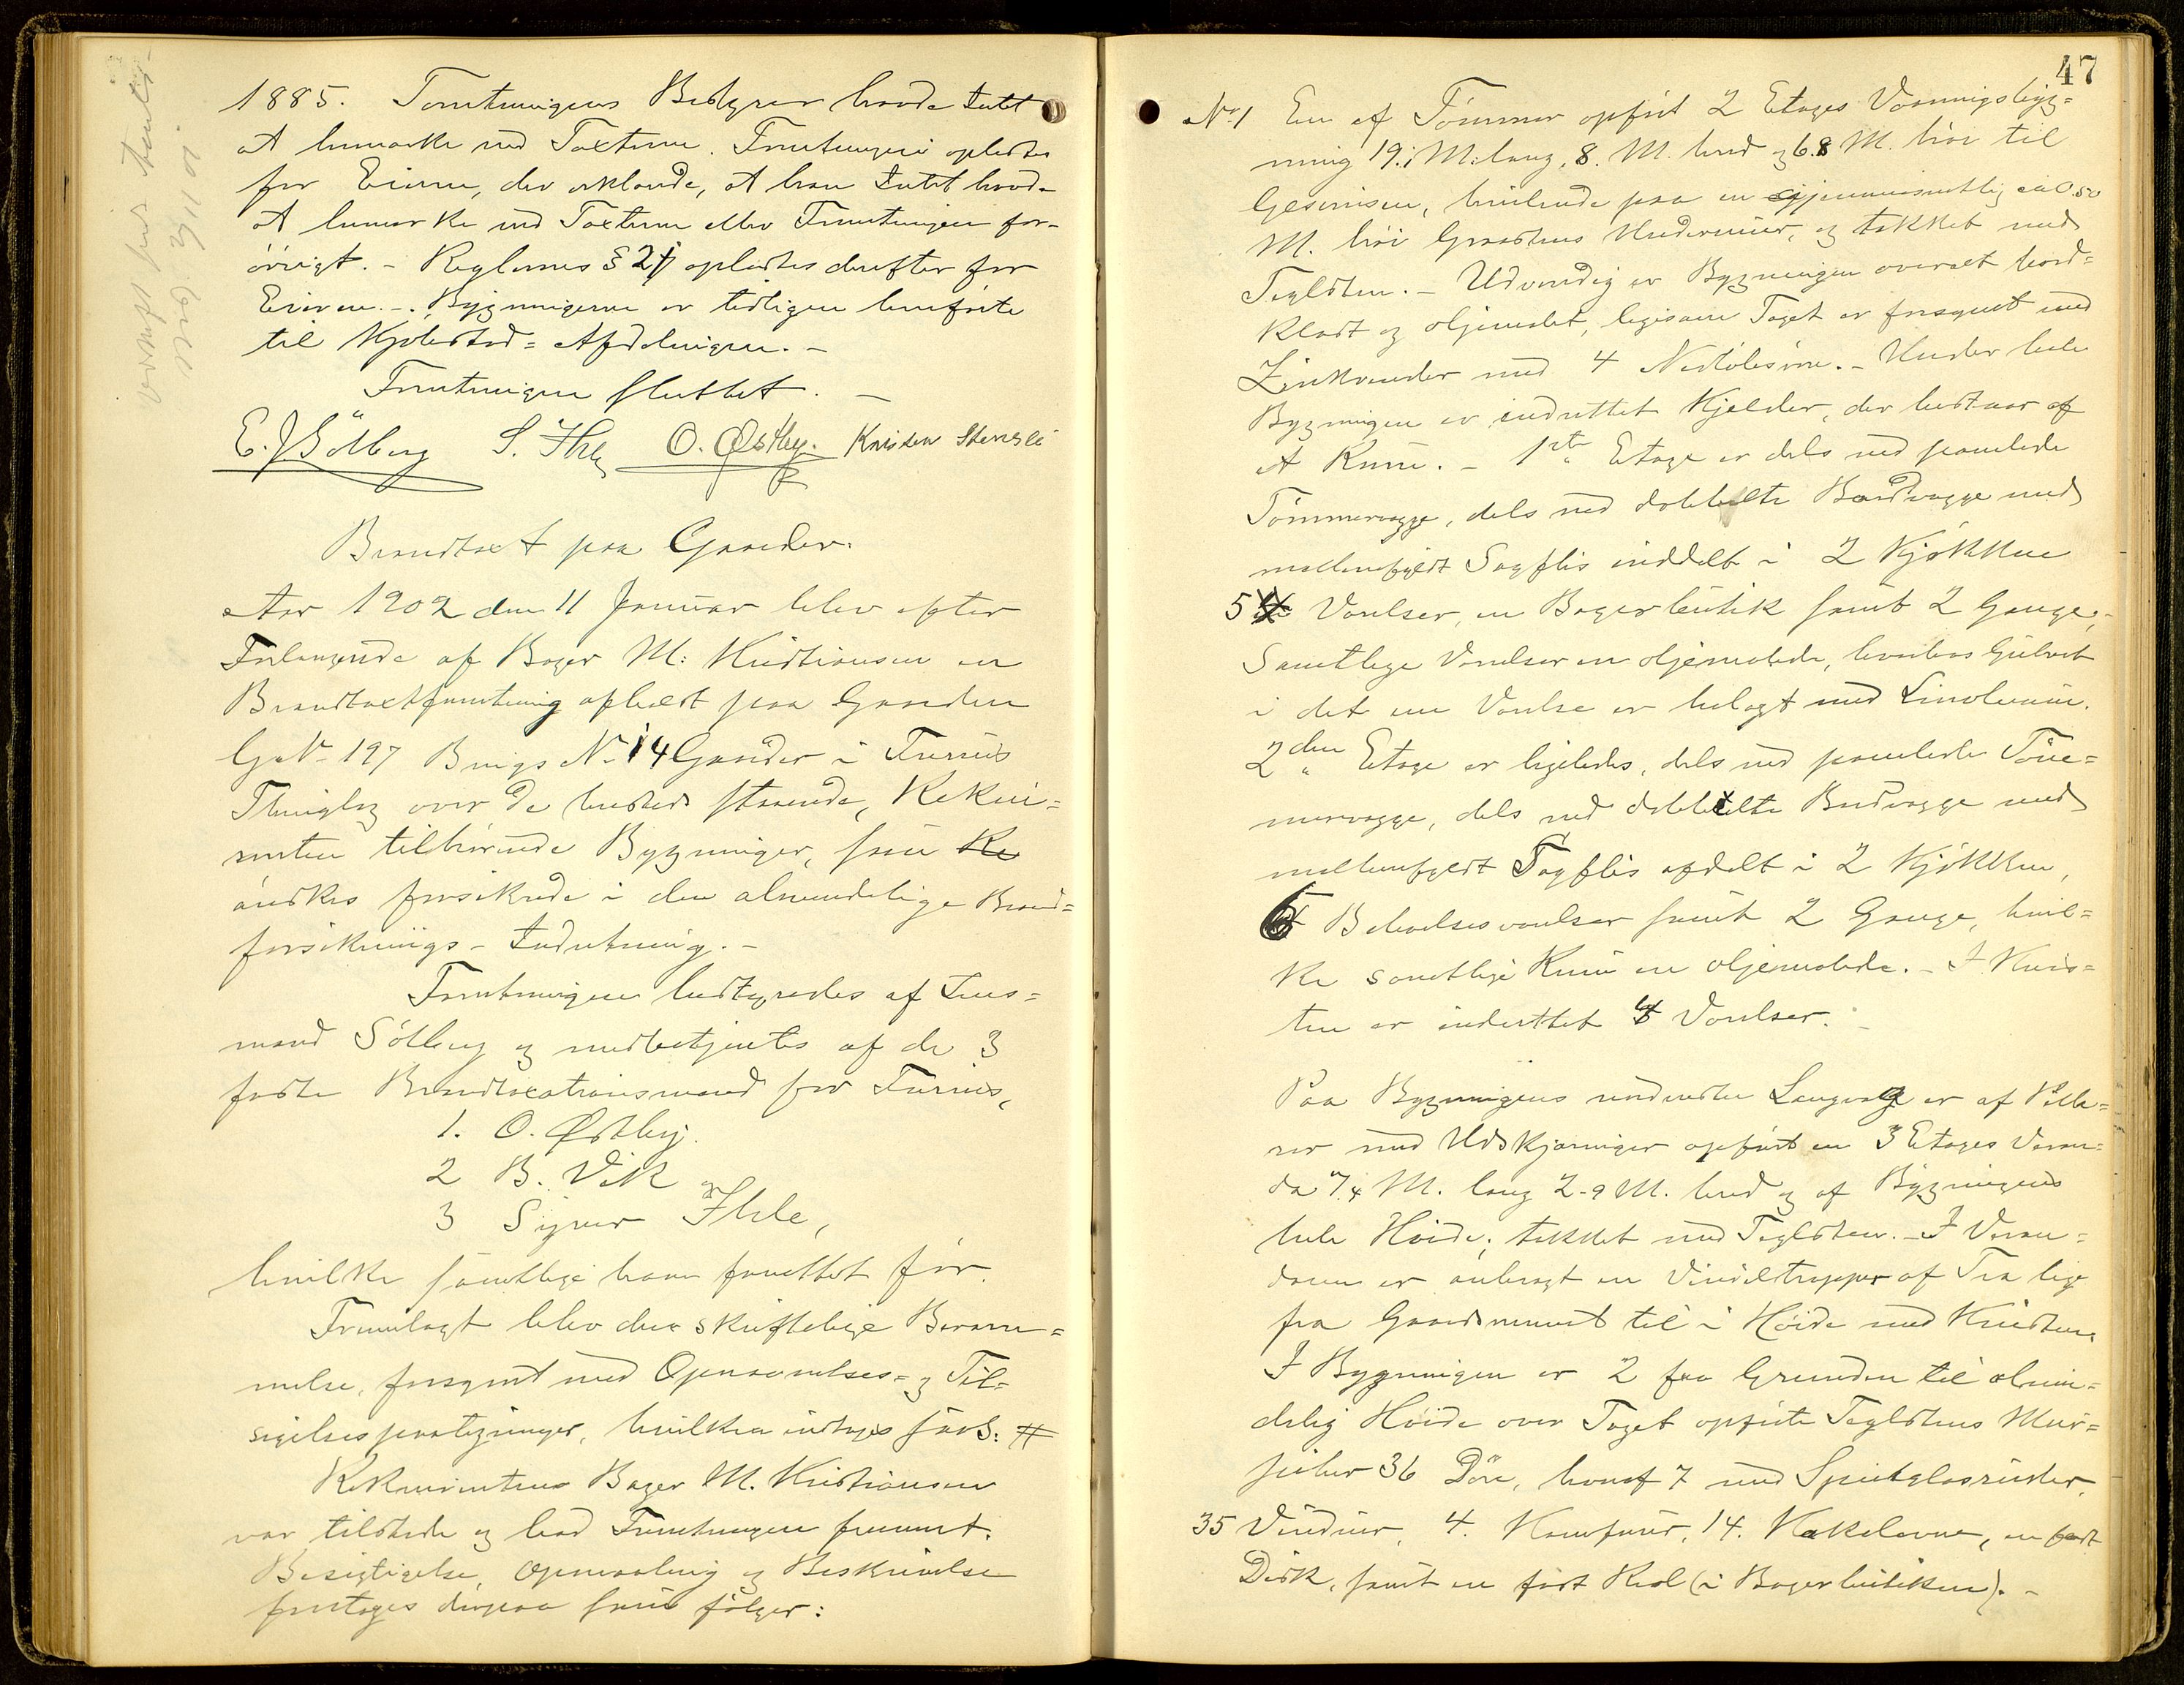 1885. Forretningens Bestyrer havde Intet
at bemærke ved Taxterne. Forretningen oplæstes
for Eieren, der erklærede, at han Intet havde
at bemærke ved Taxterne eller Forretningen for-
øvrigt. - Reglernes § 21 oplæstes derefter for
Eieren. -. Bygningerne er tidligere henførte
til Kjøbstad= Afdelingen. -
Forretningen sluttet. -
E. J. Sölberg S. Ihle O. Østby. Kristen Stensli
Brandtaxt paa Gaarder.
Aar 1902 den 11 Januar blev efter
Forlangende af Bager M: Kristiansen en
Brandtaxtforretning afholdt paa Gaarden
G.No 197 Brugs No 14 Gaarder i Furnes
Thinglag over de husted staaende, Rekvi=
renten tilhørende Bygninger, som
ønskes forsikrede i den almindelige Brand=
forsikrings - Indretning. -
Forretningen bestyredes af Lens=
mand Sölberg og medbetjentes af de 3
faste Brandtaxationsmænd for Furnes,
1. O. Østby.
2 B. Vik og
3 Syver Ihle,
hvilke samtlige have forrettet før.
Fremlagt blev den skriftelige Beram=
melse, forsynet med Opnævnelses= og Til=
sigelsespaategninger, hvilken indtages saal: #
Rekvirenten Bager M. Kristiansen
var tilstede og bad Forretningen fremmet.
Besigtigelse, Opmaaling og Beskrivelse
foretoges derpaa som følger:
47
No 1 En af Tømmer opført 2 Etages Vaaningsbyg=
ning 19.1 M: lang, 8. M. bred og 6.8 M. høi til
Gesimsen, hvilende paa en gjennemsnitlig ca 0.50
M. høi Graastens Undermur, og tækket med
Teglsten. - Udvendig er Bygningen overalt bord=
klædt og oljemalet, ligesom Taget er forsynet med
Zinkrender med 4 Nedløbsrør. - Under hele
Bygningen er indrettet Kjelder, der bestaar af
et Rum. - 1ste Etage er dels ved panelede
Tømmervægge, dels ved dobbelte Bordvægge med
mellemfyldt Sagflis inddelt i 2 Kjøkkene
5 Værelser, en Bagerbutik samt 2 Gange,-
Samtlige Værelser er oljemalede, hvorhos Gulvet
i det ene Værelse er belagt med Linoleum.
2den Etage er ligeledes, dels ved panelede Töm=
mervægge, dels ved dobbelte Bordvægge med
mellemfyldt Sagflis afdelt i 2 Kjøkken,
6 Beboelsesværelser samt 2 Gange, hvil=
ke samtlige Rum er oljemalede. - I Kvis=
ten er indrettet 4 Værelser. -
Paa Bygningens nordvestre Langvæg er af Pilla=
rer med Udskjæringer opført en 3 Etages Veran=
da 7.4 M. lang 2.9 M. bred og af Bygningens
hele Høide, tækket med Teglsten. - I Veran=
daen er anbragt en Vindeltrappe af Træ lige
fra Gaardsrummet til i Høide med Kvisten.
I Bygningen er 2 fra Grunden til almin=
delig Høide over Taget opførte Teglstens Mur=
piber 36 Döre, hvoraf 7 med Speilglasruder,
35 Vinduer, 4. Komfurer, 14. Kakelovne, en fast
Disk, samt en fast Reol (i Bagerbutiken). -